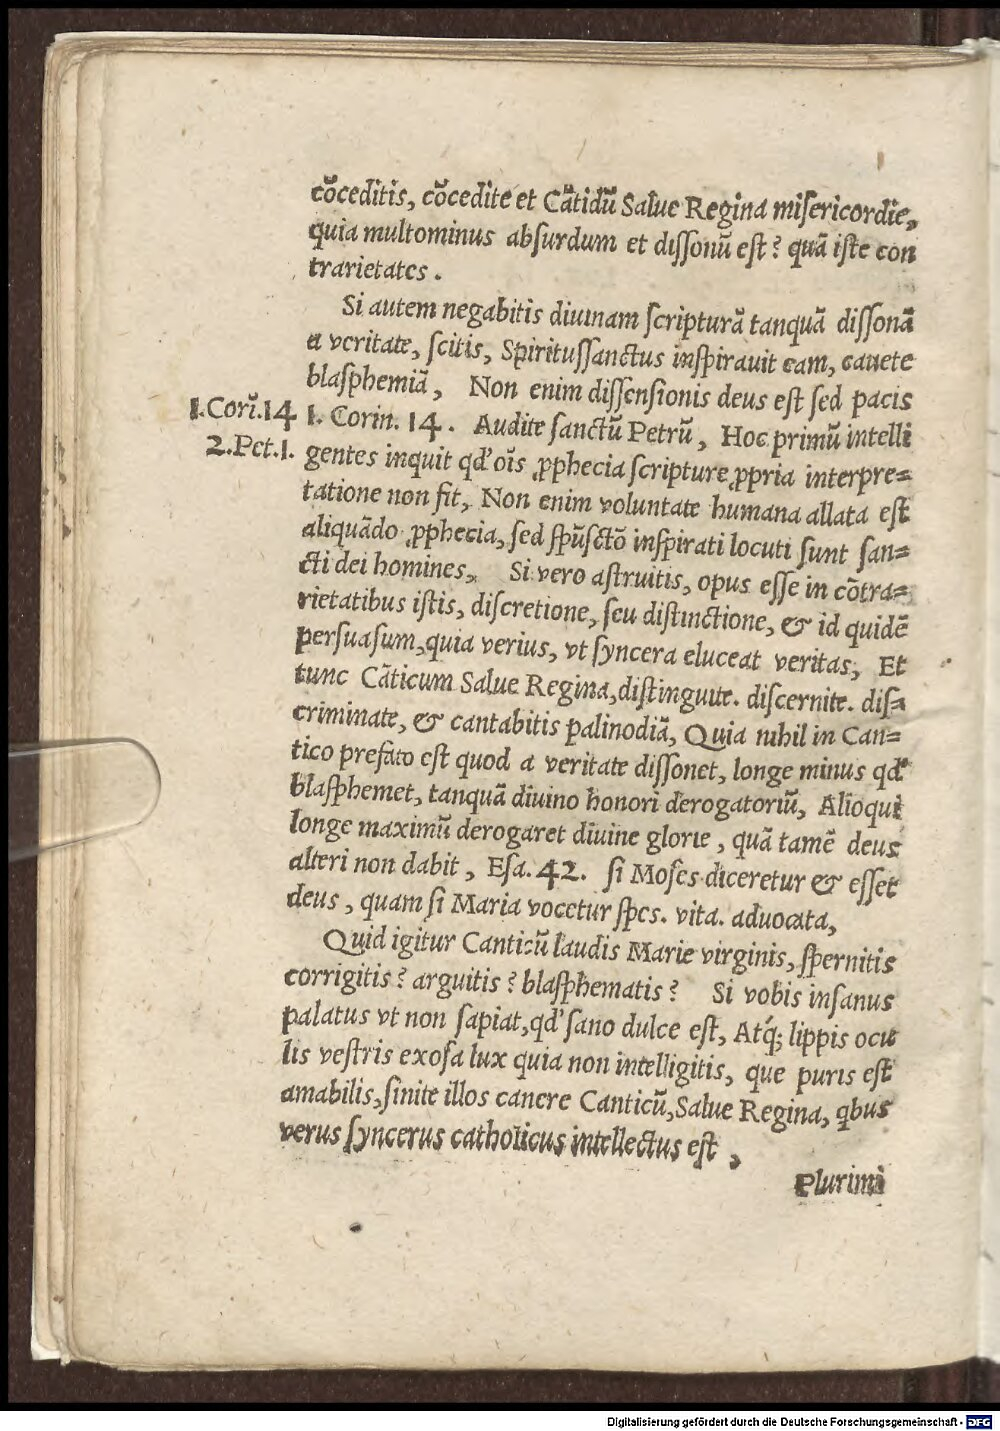 cõceditis, cõcedite et Cãtidũ Salue Regina misericordie,
quia multominus absurdum et dissonũ est? quã iste con
trarietates.
Si autem negabitis diuinam scripturã tanquã dissonã
a veritate, scitis, Spiritussanctus inspirauit eam, cauete
blasphemiã, Non enim dissensionis deus est sed pacis
1.Corĩ.14 1. Corin. 14. Audite sanctũ Petrũ, Hoc primũ intelli
2.Pet.1. gentes inquit qđ oĩs ꝓphecia scripture ꝓpria interpre=
tatione non fit, Non enim voluntate humana allata est
aliquãdo ꝓphecia, sed spũsctõ inspirati locuti sunt san=
cti dei homines, Si vero astruitis, opus esse in cõtra=
rietatibus istis, discretione, seu distinctione, & id quidẽ
persuasum, quia verius, vt syncera eluceat veritas, Et
tunc Cãticum Salue Regina, distinguite. discernite. dis=
criminate, & cantabitis palinodiã, Quia nihil in Can=
tico prefato est quod a veritate dissonet, longe minus qđ
blasphemet, tanquã diuino honori derogatoriũ, Alioqui
longe maximũ derogaret diuine glorie, quã tamẽ deus
alteri non dabit, Esa. 42. si Moses diceretur & esset
deus, quam si Maria vocetur spes. vita. aduocata,
Quid igitur Canticũ laudis Marie virginis, spernitis
corrigitis? arguitis? blasphematis? Si vobis insanus
palatus vt non sapiat, qđ sano dulce est, Atq; lippis ocu
lis vestris exosa lux quia non intelligitis, que puris est
amabilis, sinite illos canere Canticũ, Salue Regina, qbus
verus syncerus catholicus intellectus est,
Plurimi
Digitalisierung gefördert durch die Deutsche Forschungsgemeinschaft - DFG